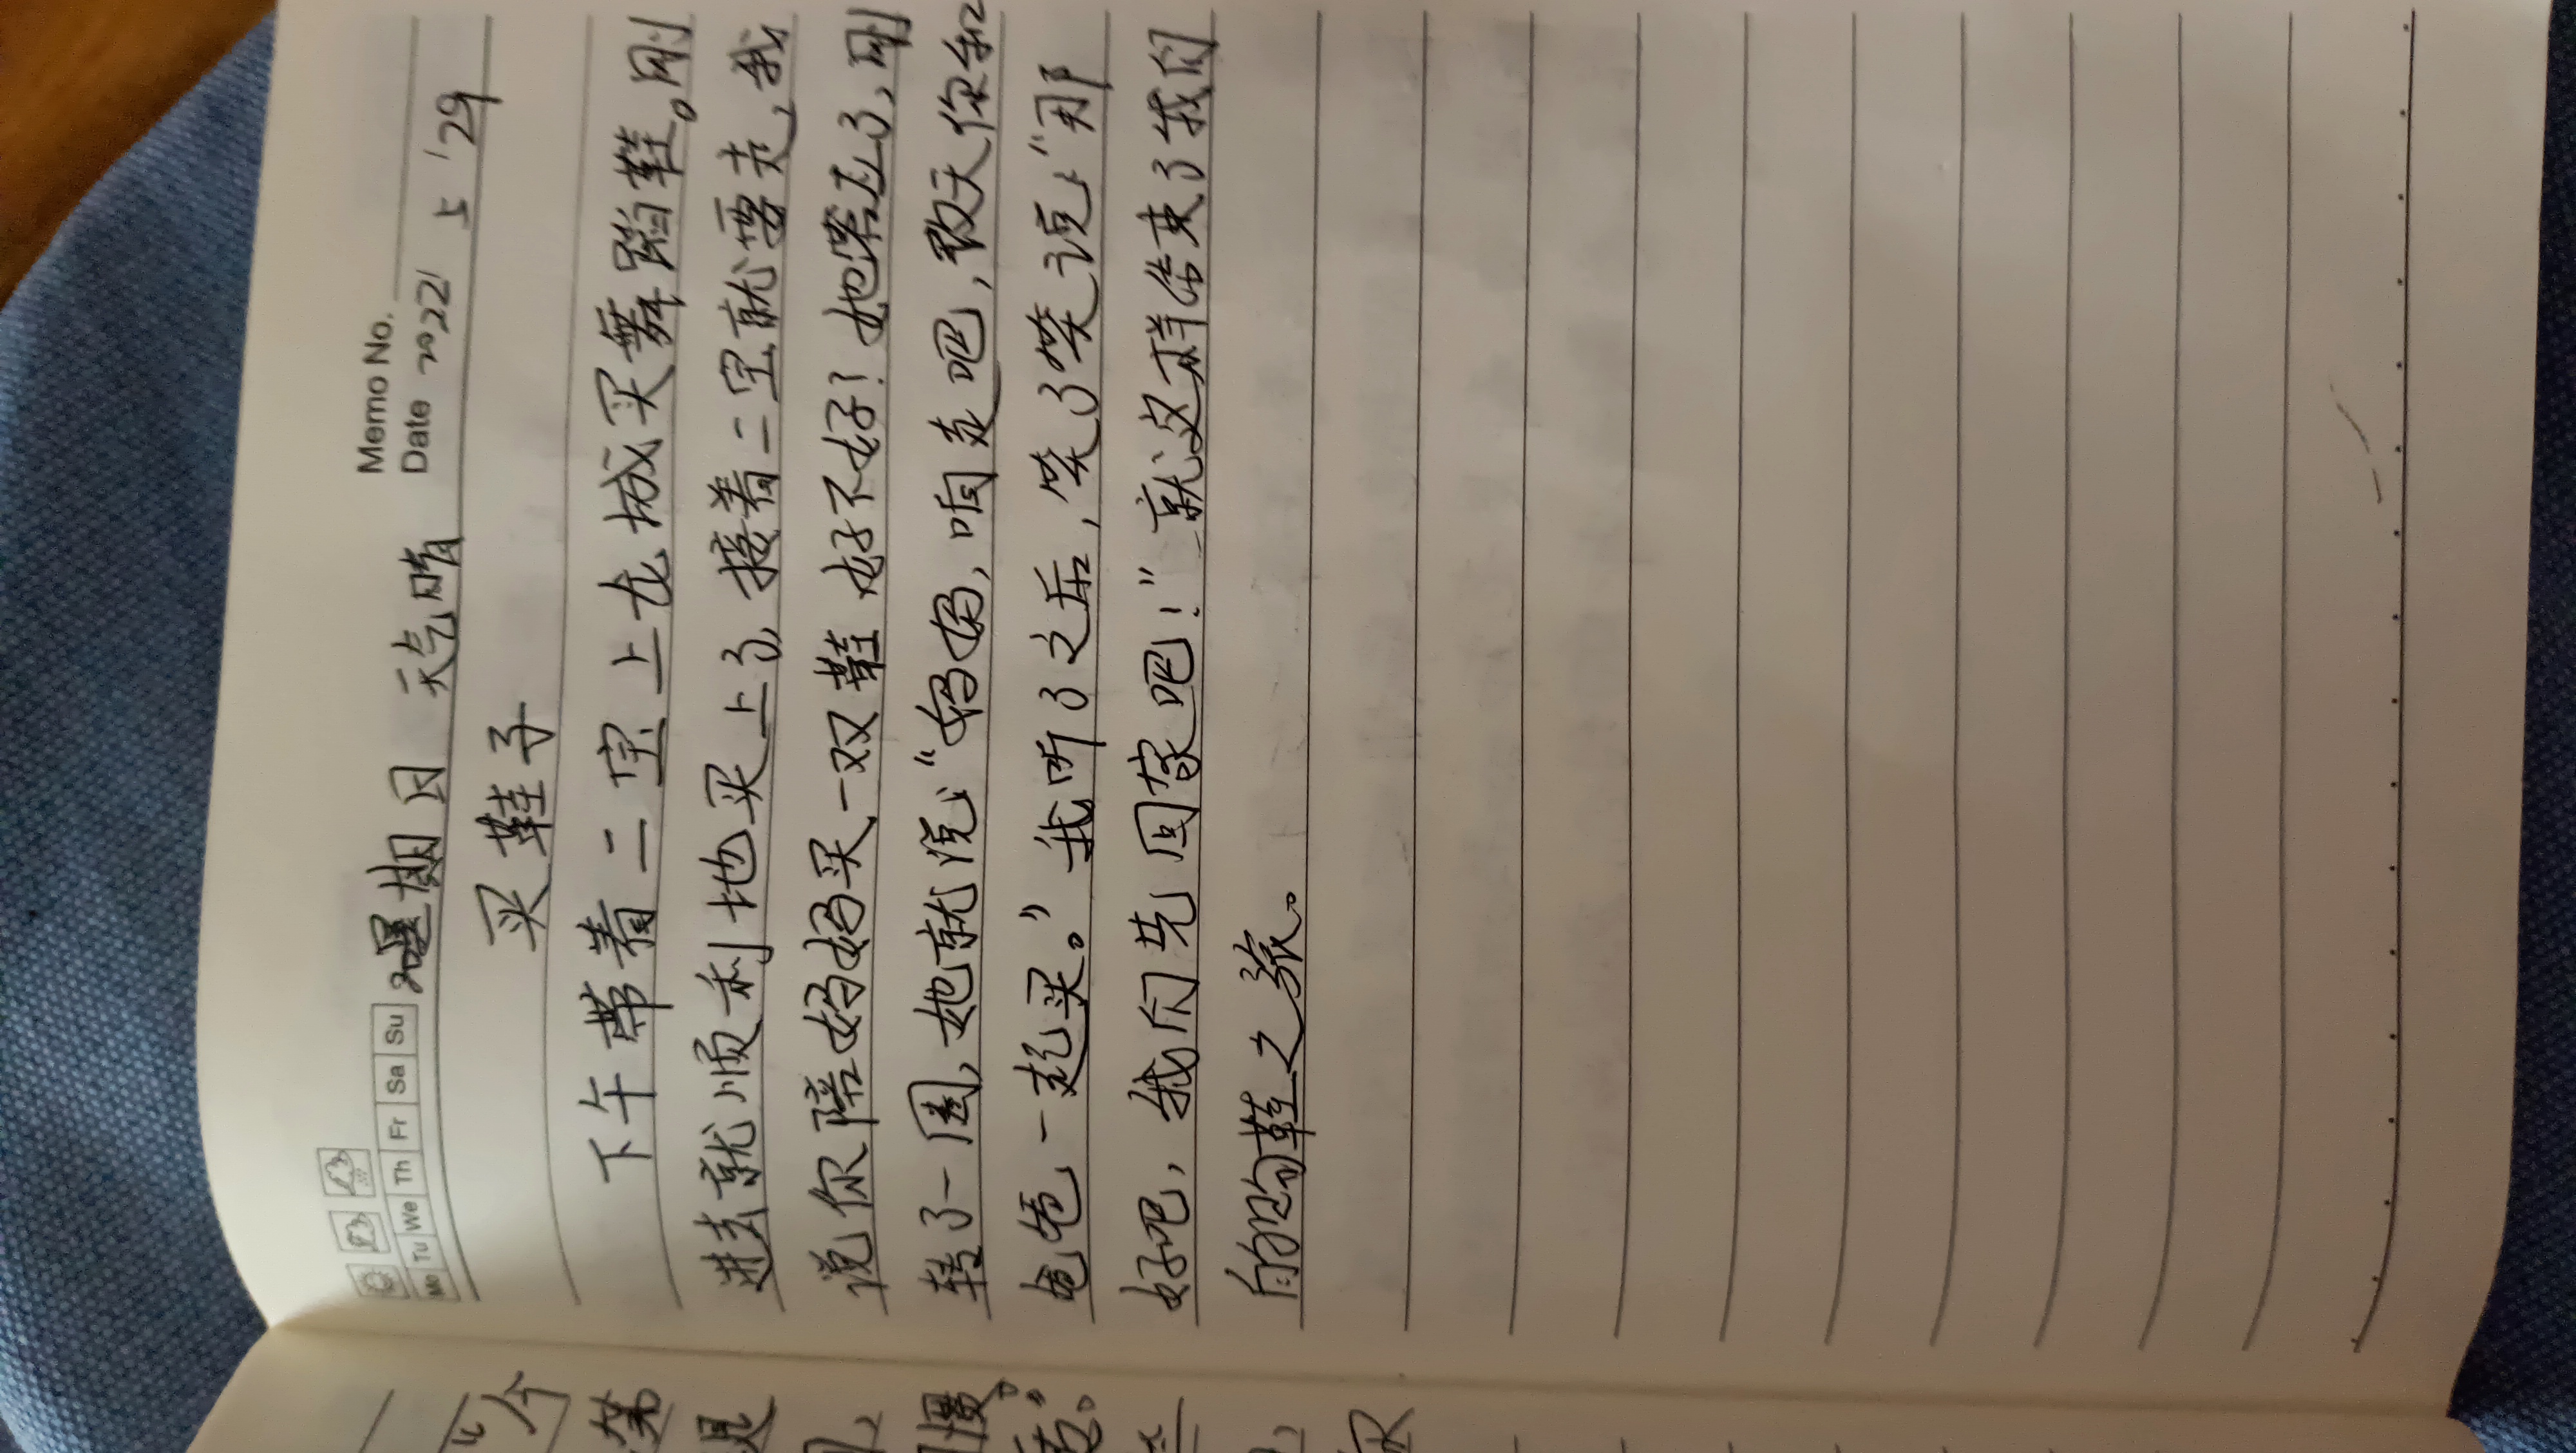 Memo No.
Mo Tu We Th Fr Sa Su
Date 2022 5 '29
星期日 天气晴
买鞋子
下午带着二宝上龙城买舞蹈鞋。刚
进去就顺利地买上了,接着二宝就要走,我
说你陪妈妈买一双鞋好不好!她答应了,刚
转了一圈,她就说:“妈妈,咱走吧,改天你和
爸爸一起买。”我听了之后,笑了笑说:“那
好吧,我们先回家吧!”就这样结束了我们
的购鞋之旅。
今
第
是
惯